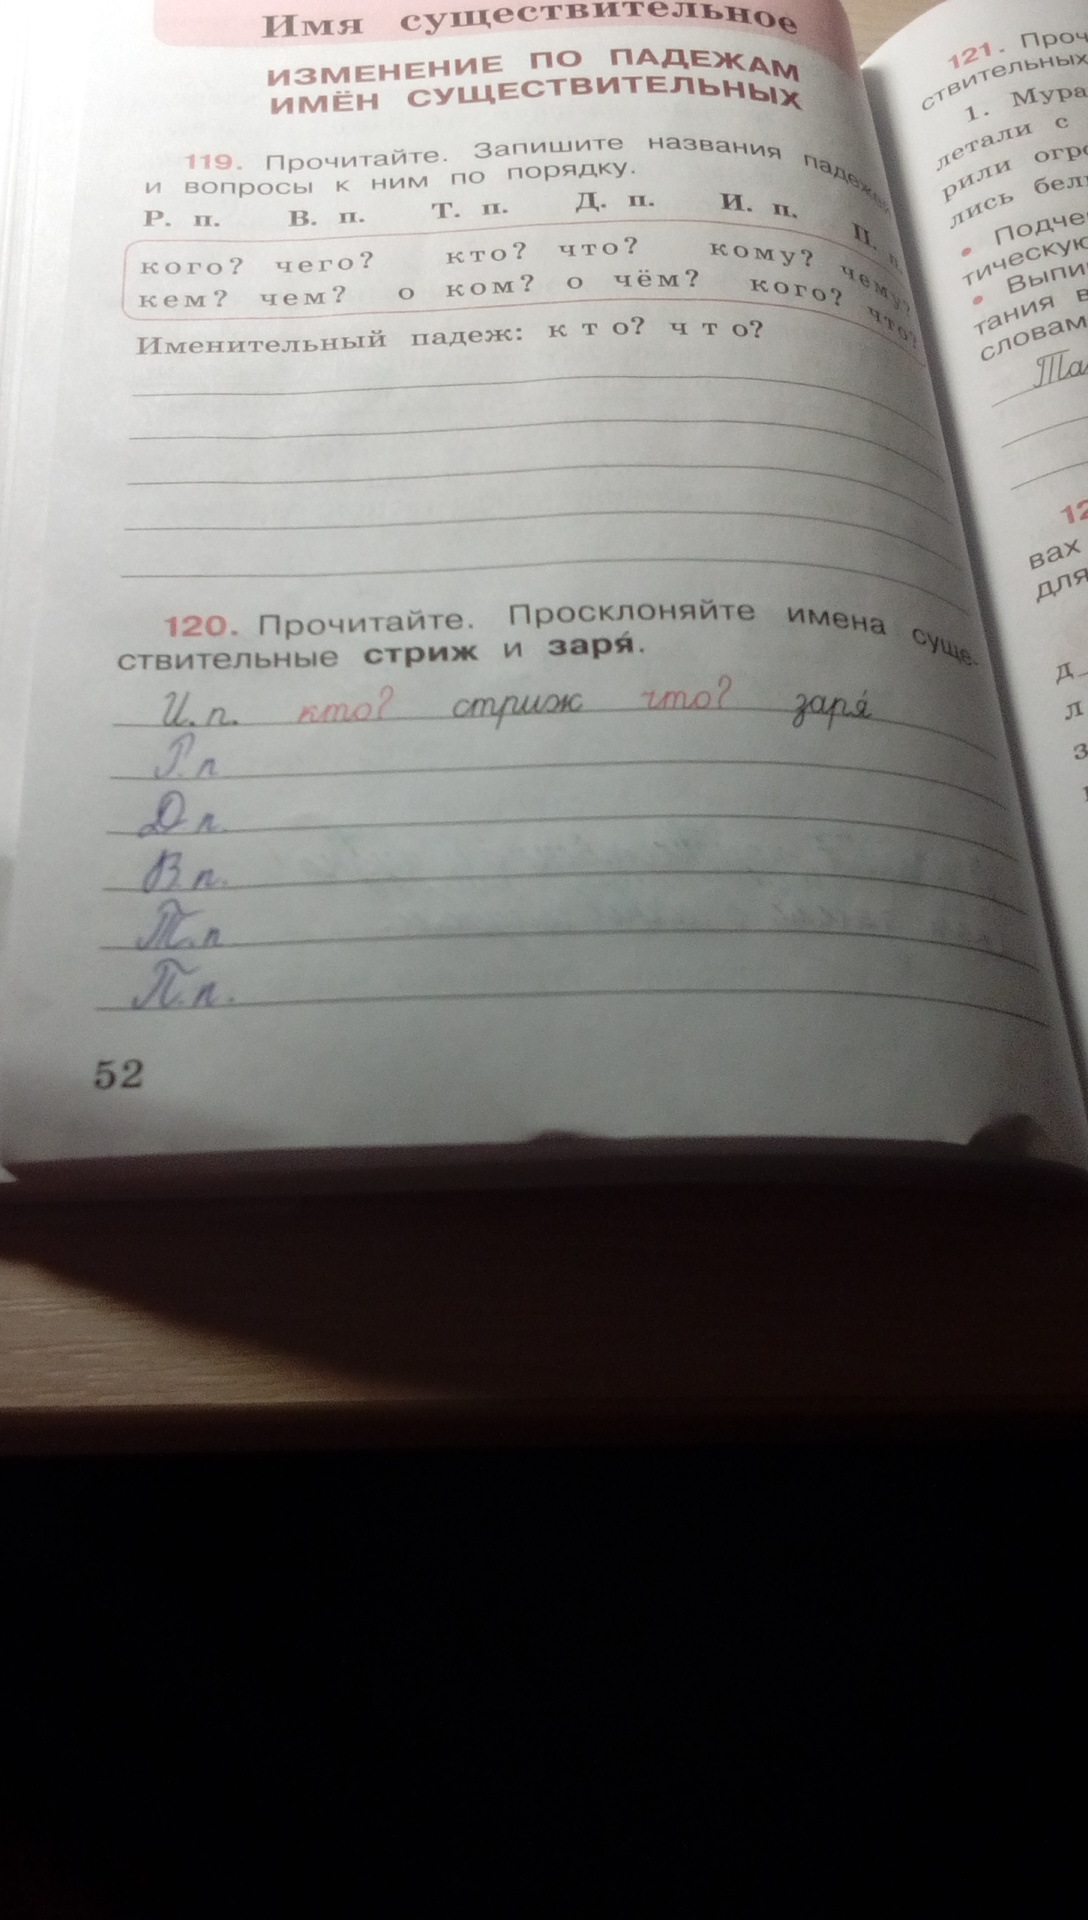 Имя существительное
ИЗМЕНЕНИЕ ПО ПАДЕЖАМ
ИМЁН СУЩЕСТВИТЕЛЬНЫХ
119. Прочитайте. Запишите названия падежей
и вопросы к ним по порядку.
Р. п. В. п. Т. п. Д. п. И. п. П. п.
кого? чего? кто? что? кому? чему?
кем? чем? о ком? о чём? кого? что?
Именительный падеж: к т о? ч т о?
120. Прочитайте. Просклоняйте имена суще-
ствительные стриж и заря́.
И. п. кто? стриж что? заря́
Р. п
Д п.
В. п.
Т. п
П. п.
52
121. Проч
ствительных
1. Мура
летали с
рили огро
лись бел
• Подче
тическую
• Выпи
тания в
словам
Та
12
вах
для
д
л
з